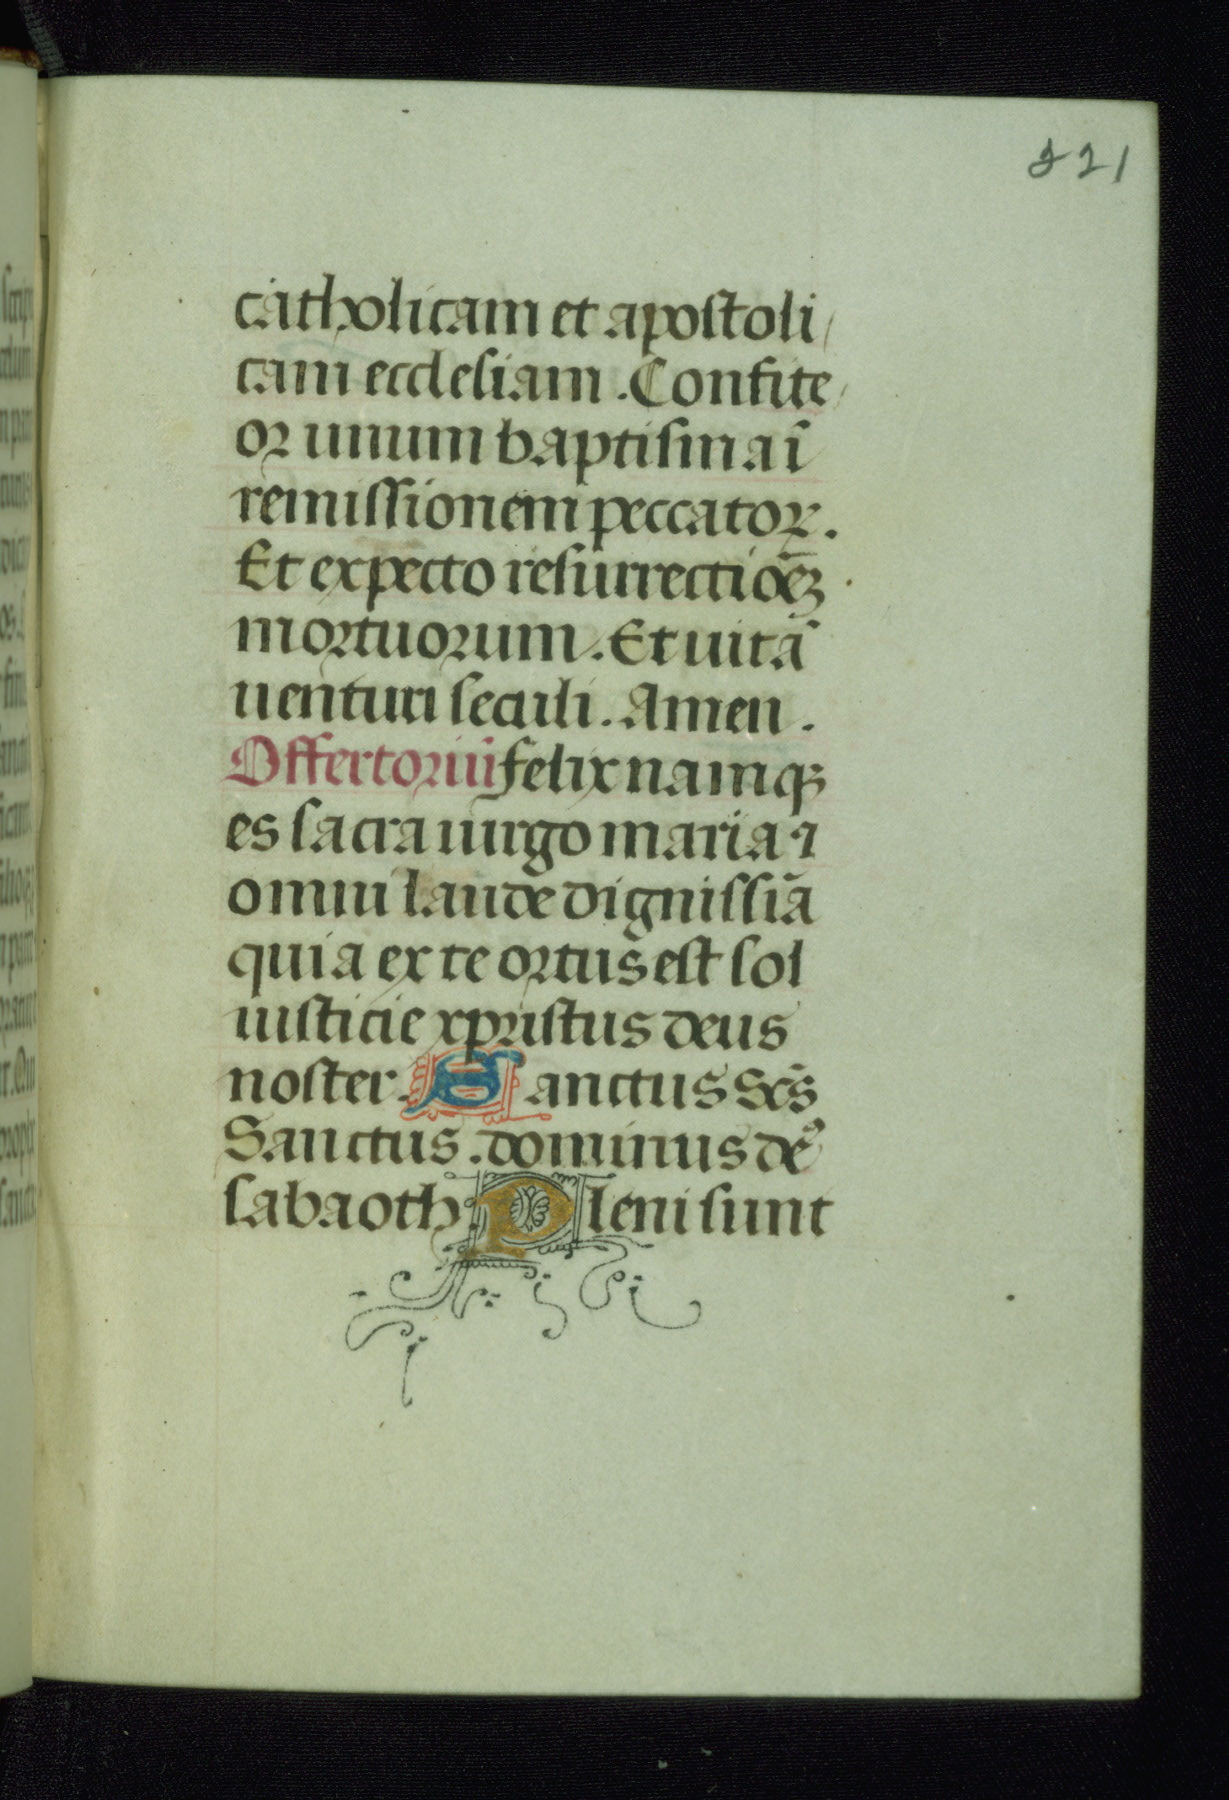 221
catholicam et apostoli
cam ecclesiam. Confite
or unum baptisma ī
remissionem peccatoꝝ.
Et expecto resurrectiōeꝫ
mortuorum. Et uitā
uenturi seculi. Amen.
Offertoriū felix namqꝫ
es sacra uirgo maria ⁊
omni laude dignissīa
quia ex te ortus est sol
iusticie xpristus deus
noster. Sanctus Scs̄
Sanctus. dominus de᷒
sabaoth Pleni sunt